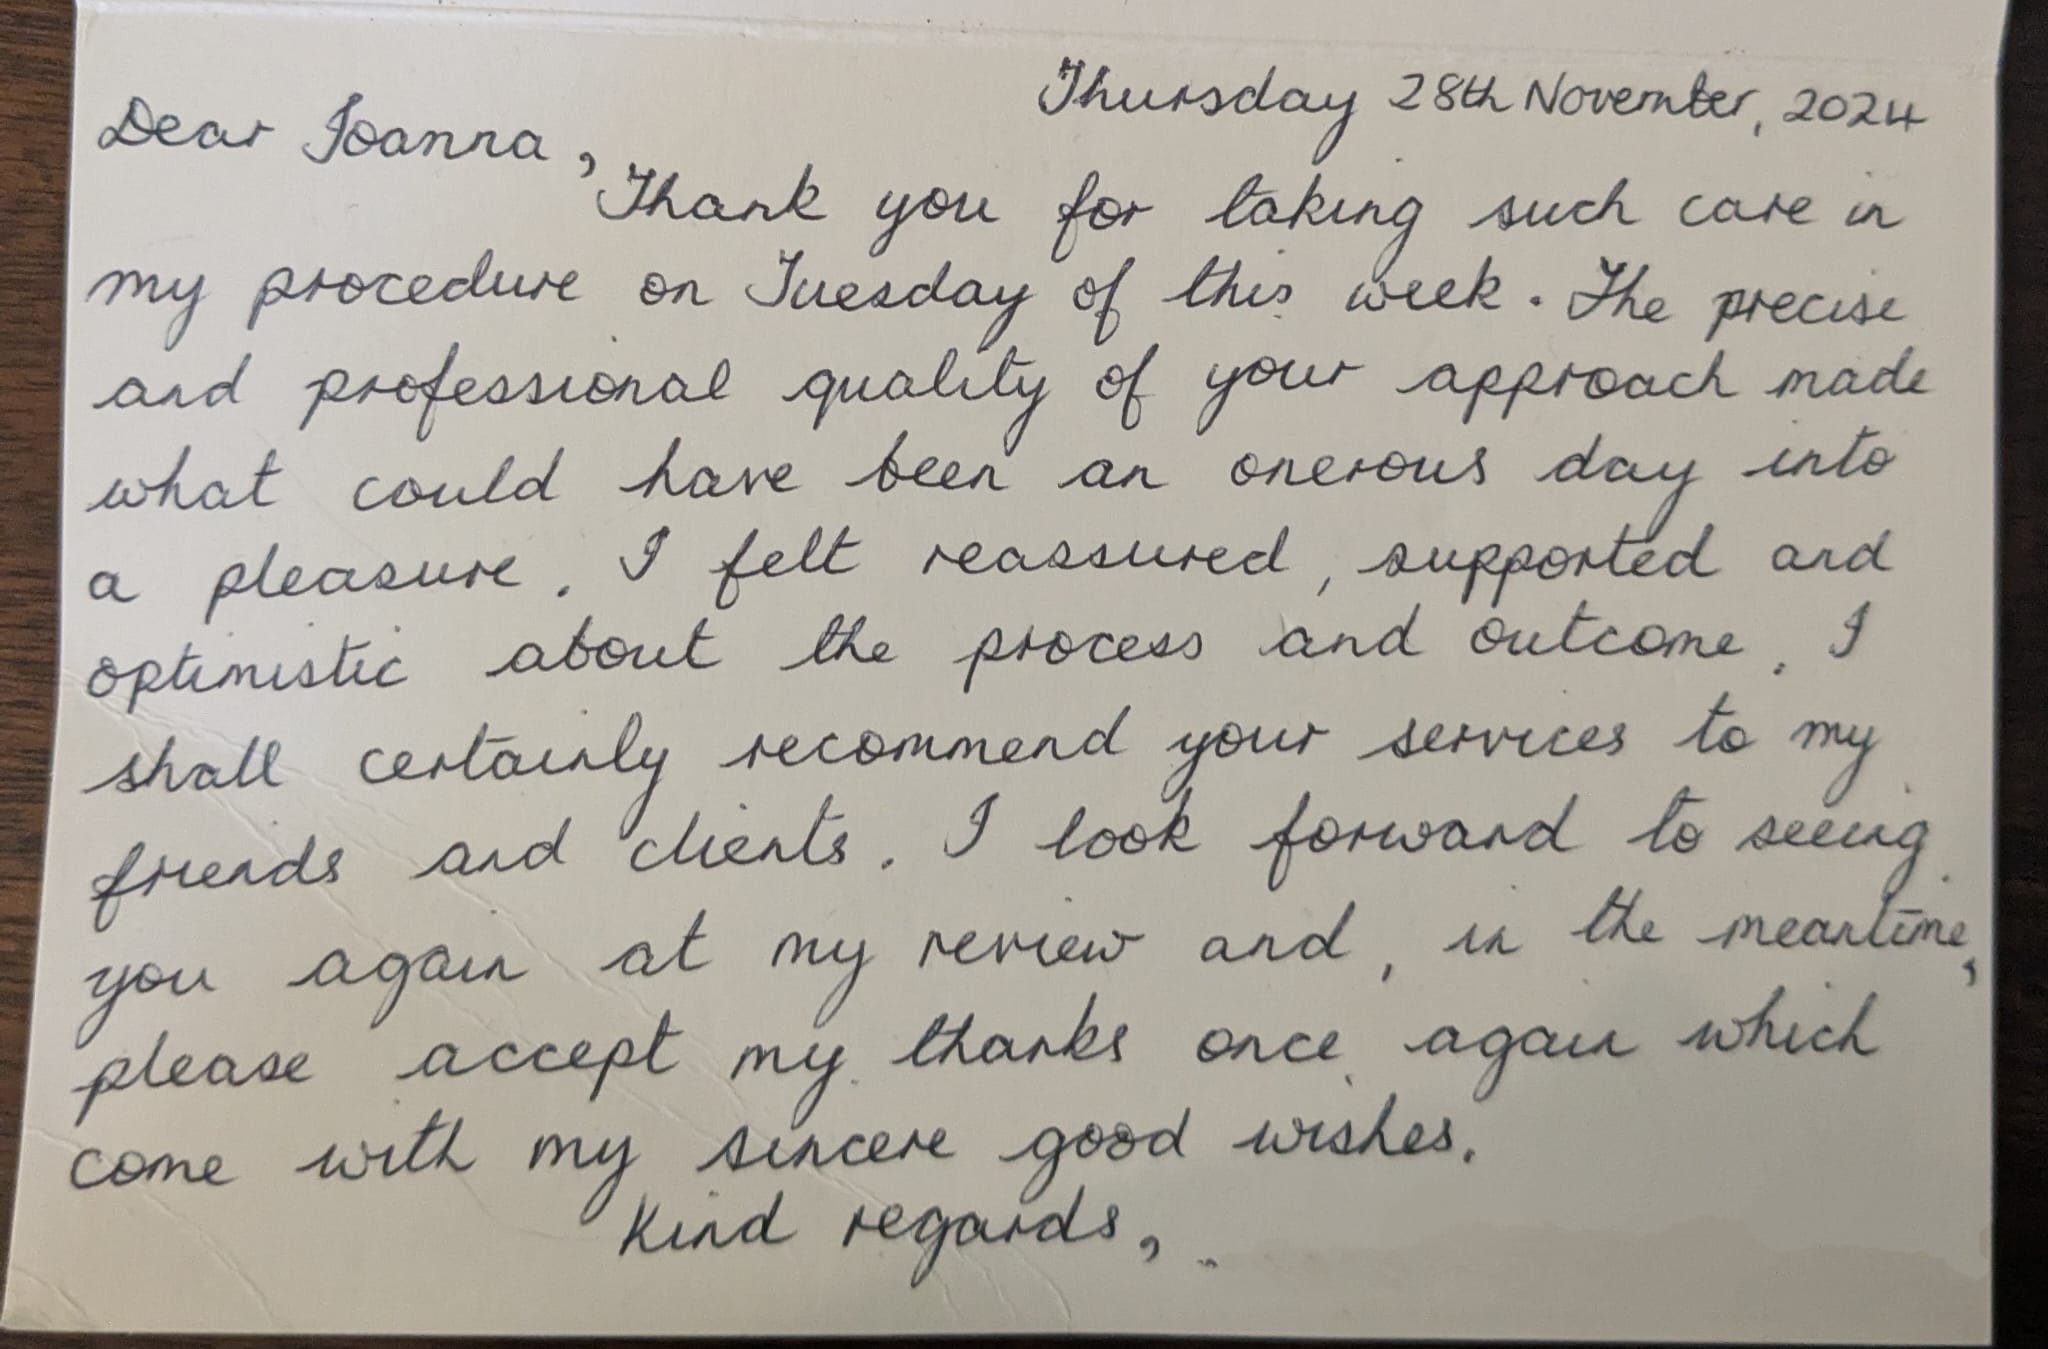 Thursday 28th November, 2024
Dear Ioanna,
Thank you for taking such care in
my procedure on Tuesday of this week. The precise
and professional quality of your approach made
what could have been an onerous day into
a pleasure. I felt reassured, supported and
optimistic about the process and outcome. I
shall certainly recommend your services to my
friends and clients. I look forward to seeing
you again at my review and, in the meantime,
please accept my thanks once again which
come with my sincere good wishes.
Kind regards,